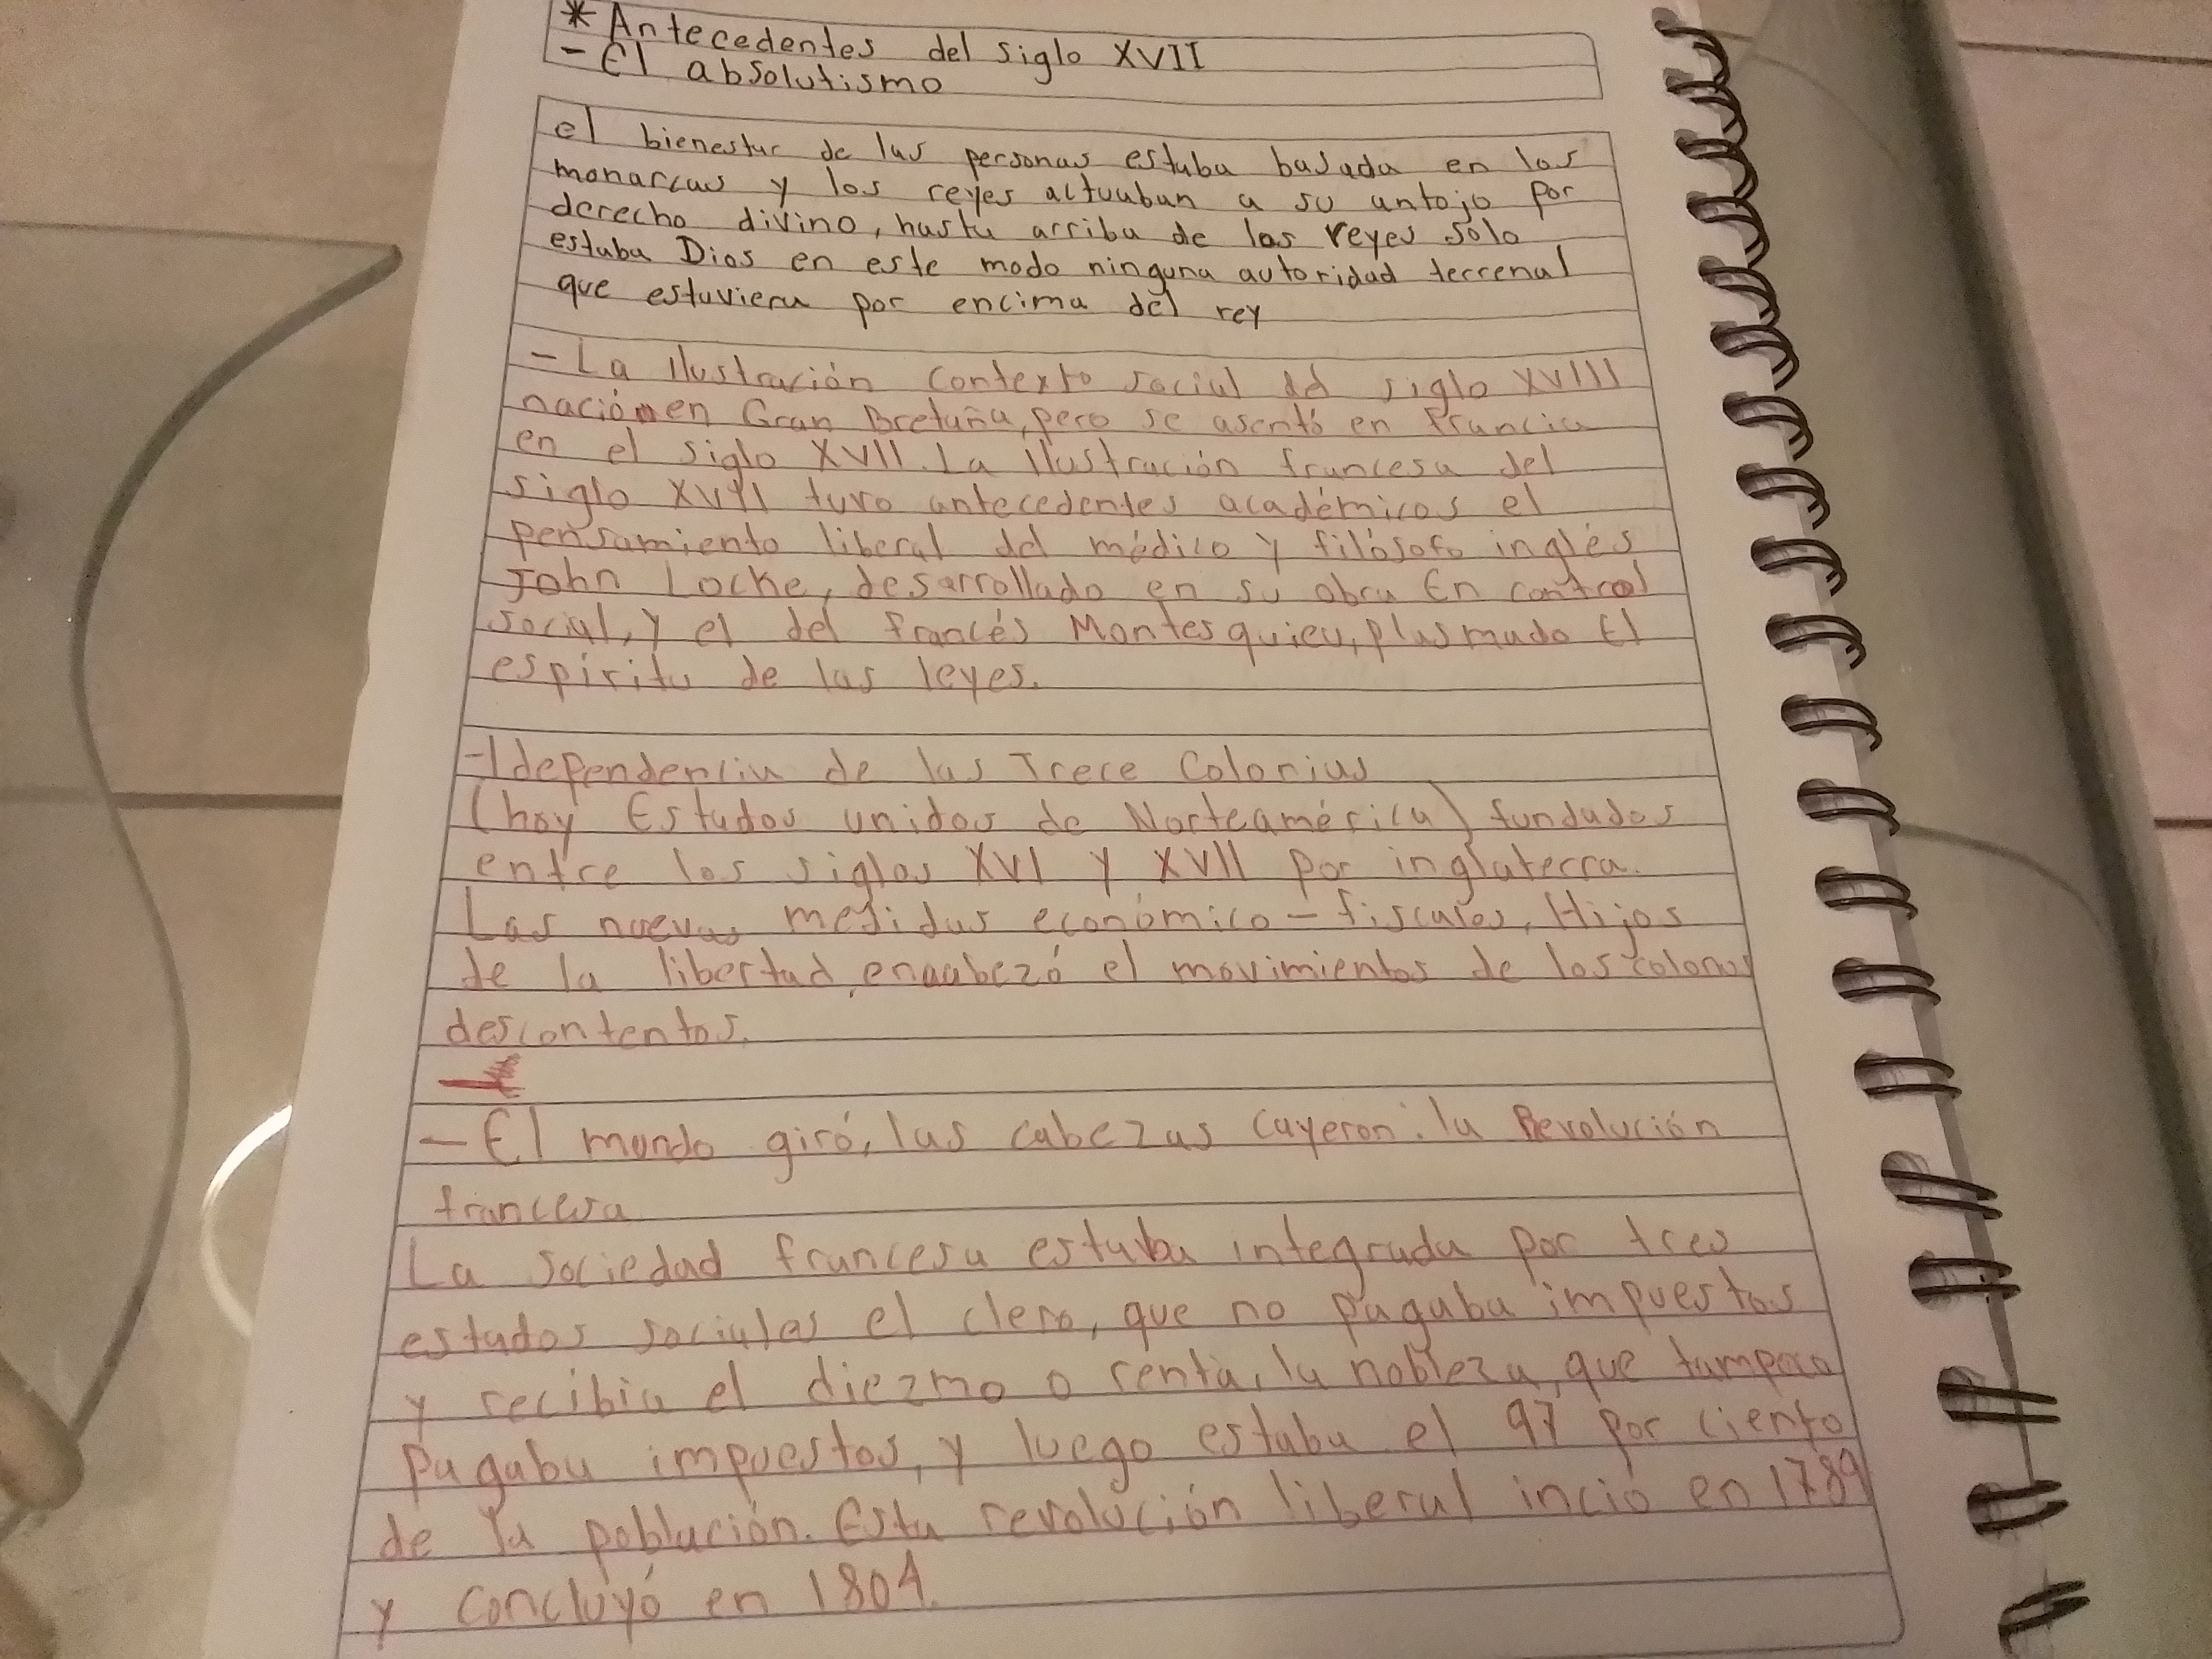 * Antecedentes del siglo XVII
- El absolutismo
el bienestar de las personas estaba basada en los
monarcas y los reyes actuaban a su antojo por
derecho divino, hasta arriba de los reyes solo
estaba Dios en este modo ninguna autoridad terrenal
que estuviera por encima del rey
- La Ilustración contexto social del siglo XVIII
nació en Gran Bretaña, pero se asentó en francia
en el siglo XVII. La Ilustración francesa del
siglo XVII tuvo antecedentes académicos el
pensamiento liberal del médico y filósofo inglés
John Locke, desarrollado en su obra En control
social, y el del francés Montesquieu, plasmado El
espíritu de las leyes.
- Idependencia de las Trece Colonias
(hoy Estados unidos de Norteamérica) fundados
entre los siglos XVI y XVII por inglaterra.
Las nuevas medidas económico - fiscales, Hijos
de la libertad, encabezó el movimientos de los colonos
descontentos.
- El mundo giró, las cabezas cayeron: la Revolución
francesa
La sociedad francesa estaba integrada por tres
estados sociales el clero, que no pagaba impuestos
y recibía el diezmo o renta, la nobleza, que tampoco
pagaba impuestos, y luego estaba el 97 por ciento
de la población. Esta revolución liberal inció en 1789
y concluyó en 1804.